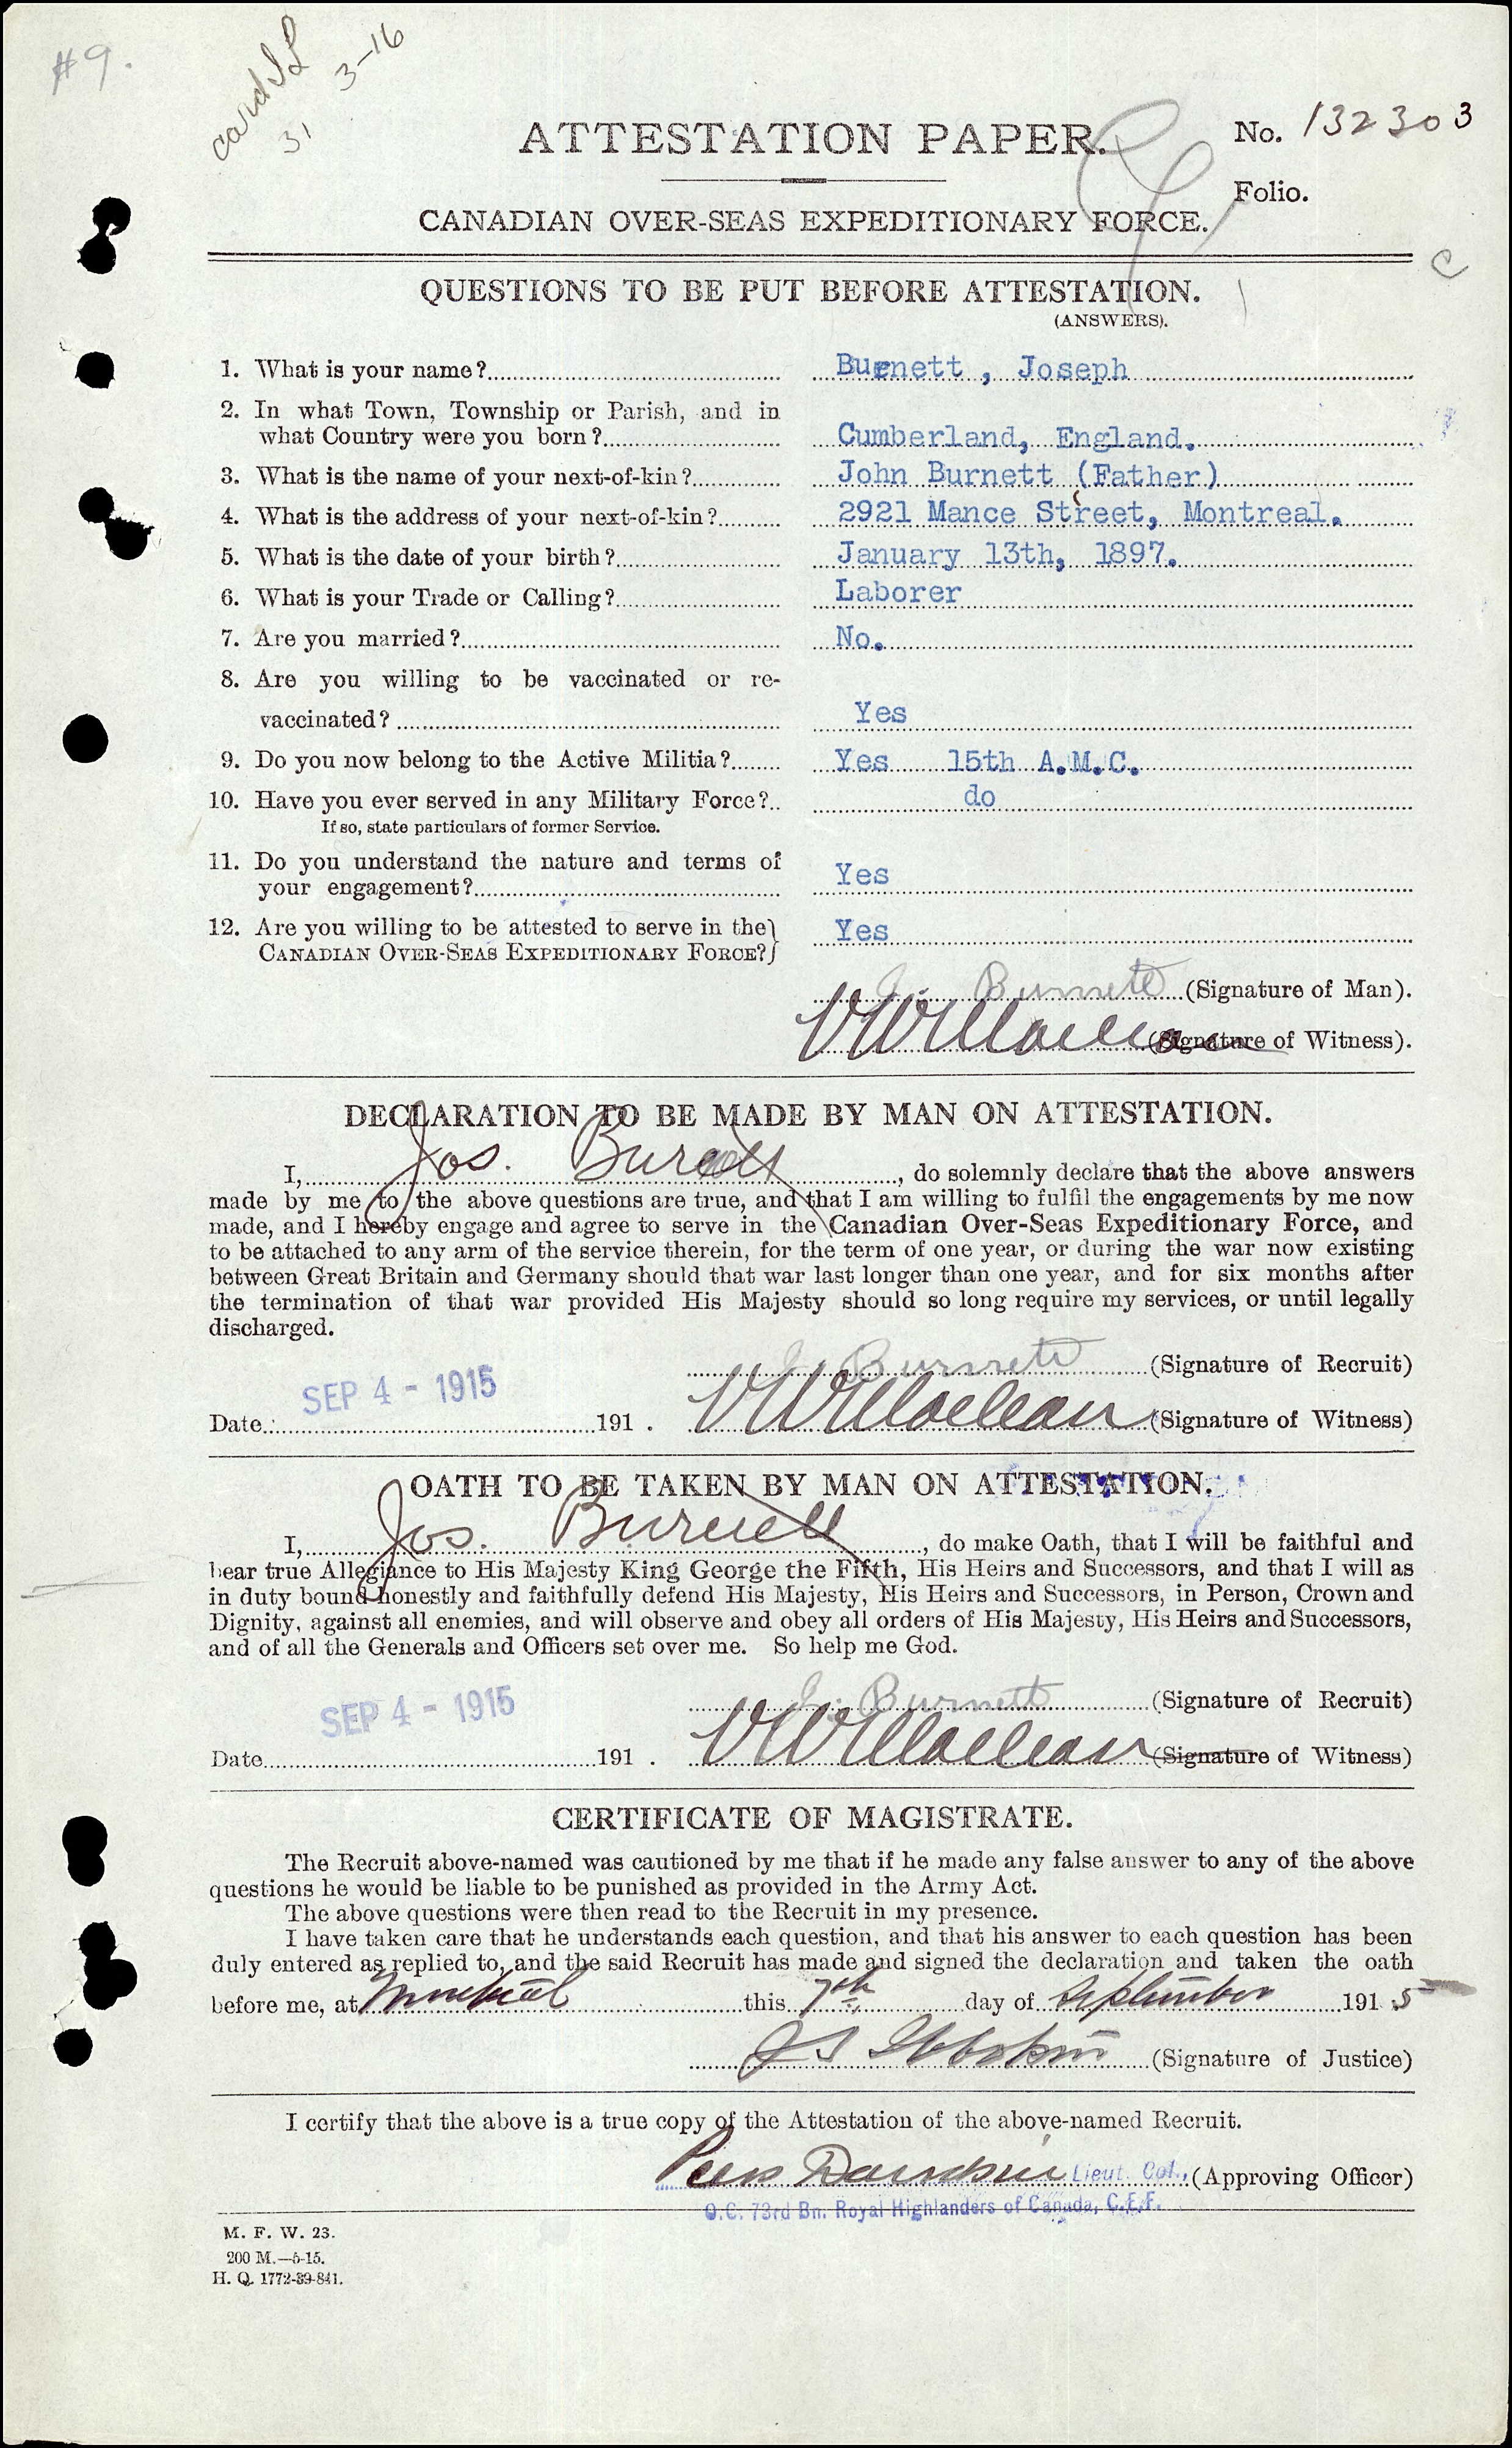 #9.
card
31 3-16
ATTESTATION PAPER.
No. 132303
Folio.
CANADIAN OVER-SEAS EXPEDITIONARY FORCE.
C
QUESTIONS TO BE PUT BEFORE ATTESTATION.
(ANSWERS).
1. What is your name? Burnett , Joseph
2. In what Town, Township or Parish, and in
what Country were you born? Cumberland, England.
3. What is the name of your next-of-kin? John Burnett (Father)
4. What is the address of your next-of-kin? 2921 Mance Street, Montreal.
5. What is the date of your birth? January 13th, 1897.
6. What is your Trade or Calling? Laborer
7. Are you married? No.
8. Are you willing to be vaccinated or re-
vaccinated? Yes
9. Do you now belong to the Active Militia? Yes 15th A.M.C.
10. Have you ever served in any Military Force? do
If so, state particulars of former Service.
11. Do you understand the nature and terms of
your engagement? Yes
12. Are you willing to be attested to serve in the
CANADIAN OVER-SEAS EXPEDITIONARY FORCE? Yes
J. Burnett (Signature of Man).
(Signature of Witness).
DECLARATION TO BE MADE BY MAN ON ATTESTATION.
I, Jos. Burnett, do solemnly declare that the above answers
made by me to the above questions are true, and that I am willing to fulfil the engagements by me now
made, and I hereby engage and agree to serve in the Canadian Over-Seas Expeditionary Force, and
to be attached to any arm of the service therein, for the term of one year, or during the war now existing
between Great Britain and Germany should that war last longer than one year, and for six months after
the termination of that war provided His Majesty should so long require my services, or until legally
discharged.
J. Burnett (Signature of Recruit)
SEP 4 - 1915
Date 191 . (Signature of Witness)
OATH TO BE TAKEN BY MAN ON ATTESTATION.
I, Jos. Burnett, do make Oath, that I will be faithful and
bear true Allegiance to His Majesty King George the Fifth, His Heirs and Successors, and that I will as
in duty bound honestly and faithfully defend His Majesty, His Heirs and Successors, in Person, Crown and
Dignity, against all enemies, and will observe and obey all orders of His Majesty, His Heirs and Successors,
and of all the Generals and Officers set over me. So help me God.
J. Burnett (Signature of Recruit)
SEP 4 - 1915
Date 191 . (Signature of Witness)
CERTIFICATE OF MAGISTRATE.
The Recruit above-named was cautioned by me that if he made any false answer to any of the above
questions he would be liable to be punished as provided in the Army Act.
The above questions were then read to the Recruit in my presence.
I have taken care that he understands each question, and that his answer to each question has been
duly entered as replied to, and the said Recruit has made and signed the declaration and taken the oath
before me, at Montreal this 7th day of September 1915
(Signature of Justice)
I certify that the above is a true copy of the Attestation of the above-named Recruit.
Peers Davidson Lieut. Col., (Approving Officer)
O.C. 73rd Bn. Royal Highlanders of Canada, C.E.F.
M. F. W. 23.
200 M.—5-15.
H. Q. 1772-39-841.